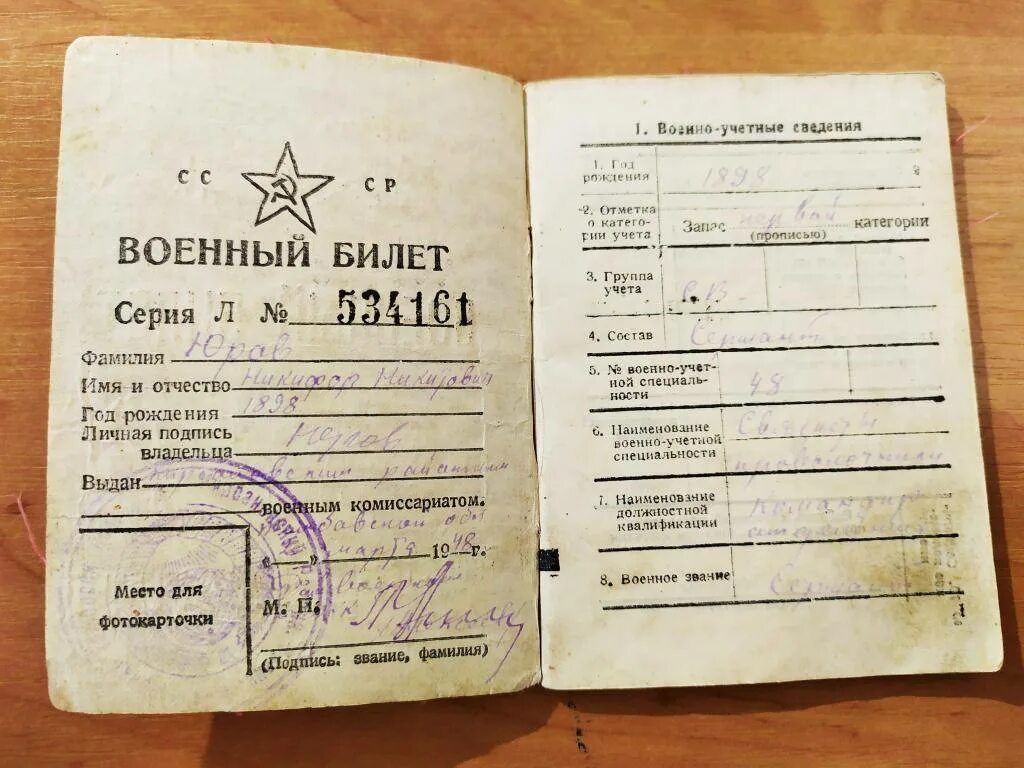 СС СР
ВОЕННЫЙ БИЛЕТ
Серия Л № 534161
Фамилия Юров
Имя и отчество Никифор Никитович
Год рождения 1898
Личная подпись
владельца Юров
Выдан районным
военным комиссариатом.
обл
" " марта 1948 г.
Место для
фотокарточки
М. П.
(Подпись: звание, фамилия)
I. Военно-учетные сведения
1. Год
рождения 1898
2. Отметка
о катего-
рии учета
Запас первой категории
(прописью)
3. Группа
учета С. В.
4. Состав Сержант
5. № военно-учет-
ной специаль-
ности 48
6. Наименование
военно-учетной
специальности
Связисты
проволочники
7. Наименование
должностной
квалификации
Командир
отделения
8. Военное звание Сержант